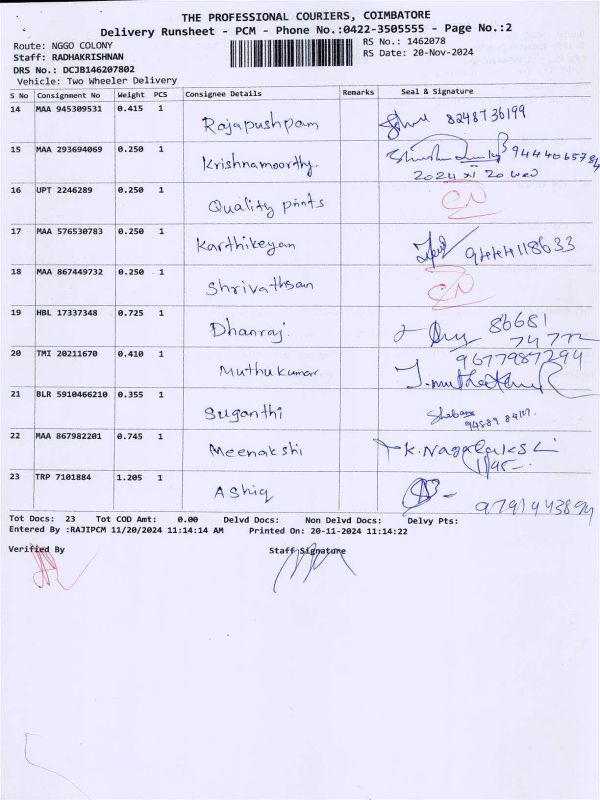 THE PROFESSIONAL COURIERS, COIMBATORE
Delivery Runsheet - PCM - Phone No.:0422-3505555 - Page No.:2
Route: NGGO COLONY RS No.: 1462078
Staff: RADHAKRISHNAN RS Date: 20-Nov-2024
DRS No.: DCJB146207802
Vehicle: Two Wheeler Delivery
S No Consignment No Weight PCS Consignee Details Remarks Seal & Signature
14 MAA 945309531 0.415 1 Rajapushpam 8248736199
15 MAA 293694069 0.250 1 Krishnamoorthy.
2024 XI 20 Wed
16 UPT 2246289 0.250 1 Quality prints
17 MAA 576530783 0.250 1 Karthikeyan 9444118633
18 MAA 867449732 0.250 1 Shrivathsan
19 HBL 17337348 0.725 1 Dhanraj. 86681
20 TMI 20211670 0.410 1 Muthukumar 9677987294
21 BLR 5910466210 0.355 1 Suganthi
22 MAA 867982201 0.745 1 Meenakshi
23 TRP 7101884 1.205 1 Ashiq
Tot Docs: 23 Tot COD Amt: 0.00 Delvd Docs: Non Delvd Docs: Delvy Pts:
Entered By :RAJIPCM 11/20/2024 11:14:14 AM Printed On: 20-11-2024 11:14:22
Verified By Staff Signature